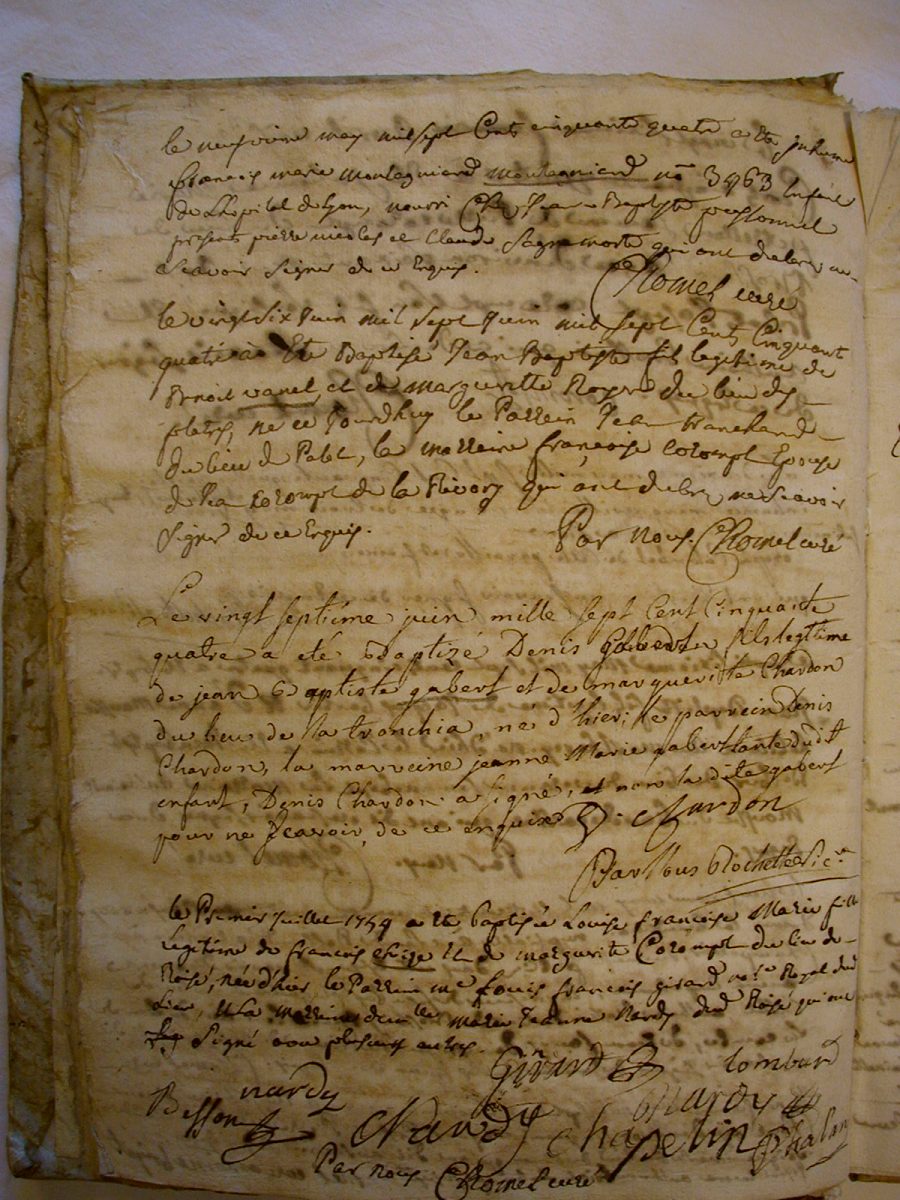 le neufvieme may mil sept Cents cinquante quatre a ete inhumé
francois marie montagniard montagniard no 3963 Enfant
de L'hopital de Lyon, nourri Chez Jean Baptiste
presents pierre nicolas et Claude Sagnemorte qui ont declaré ne
Scavoir Signer de ce Enquis.
curé
le vingt six Juin mil sept Juin mil sept Cents Cinquant
quatre a Ete Baptisé Jean Baptiste fils legitime de
Benoit vanel et de Margueritte du lieu des
platres, né ce Jourdhuy le Parrein Jean tranchand
du lieu de la marreine françoise Colompt Epouse
de Colompt de la qui ont declaré ne Scavoir
Signer de ce Enquis.
Par nous curé
Le vingt septiéme juin mille sept Cent Cinquante
quatre a été baptizé Denis gabert fils legttime
de jean baptiste gabert et de margueritte Chardon
du lieu de la tronchia, né d'hier, le parrein Denis
Chardon, la marreine jeanne Marie gabert tante dudit
enfant, Denis Chardon a signé, et non la dite gabert
pour ne Scavoir de ce enquise D. Chardon
Par Nous Rochette Vic.re
le Premier Juillet 1754 a ete baptisée Louise françoise Marie fille
Legitime de francois et de margurite Colompt du lieu de
née d'hier le Parrein me Louis francois girard no.re Royal dud
Lieu, et La marreine Marie Jeanne Nardy dud qui ont
Signé avec plusieurs autres.
Girard lombard
nardy nardy
Besson Nardy chapelin
Par nous curé